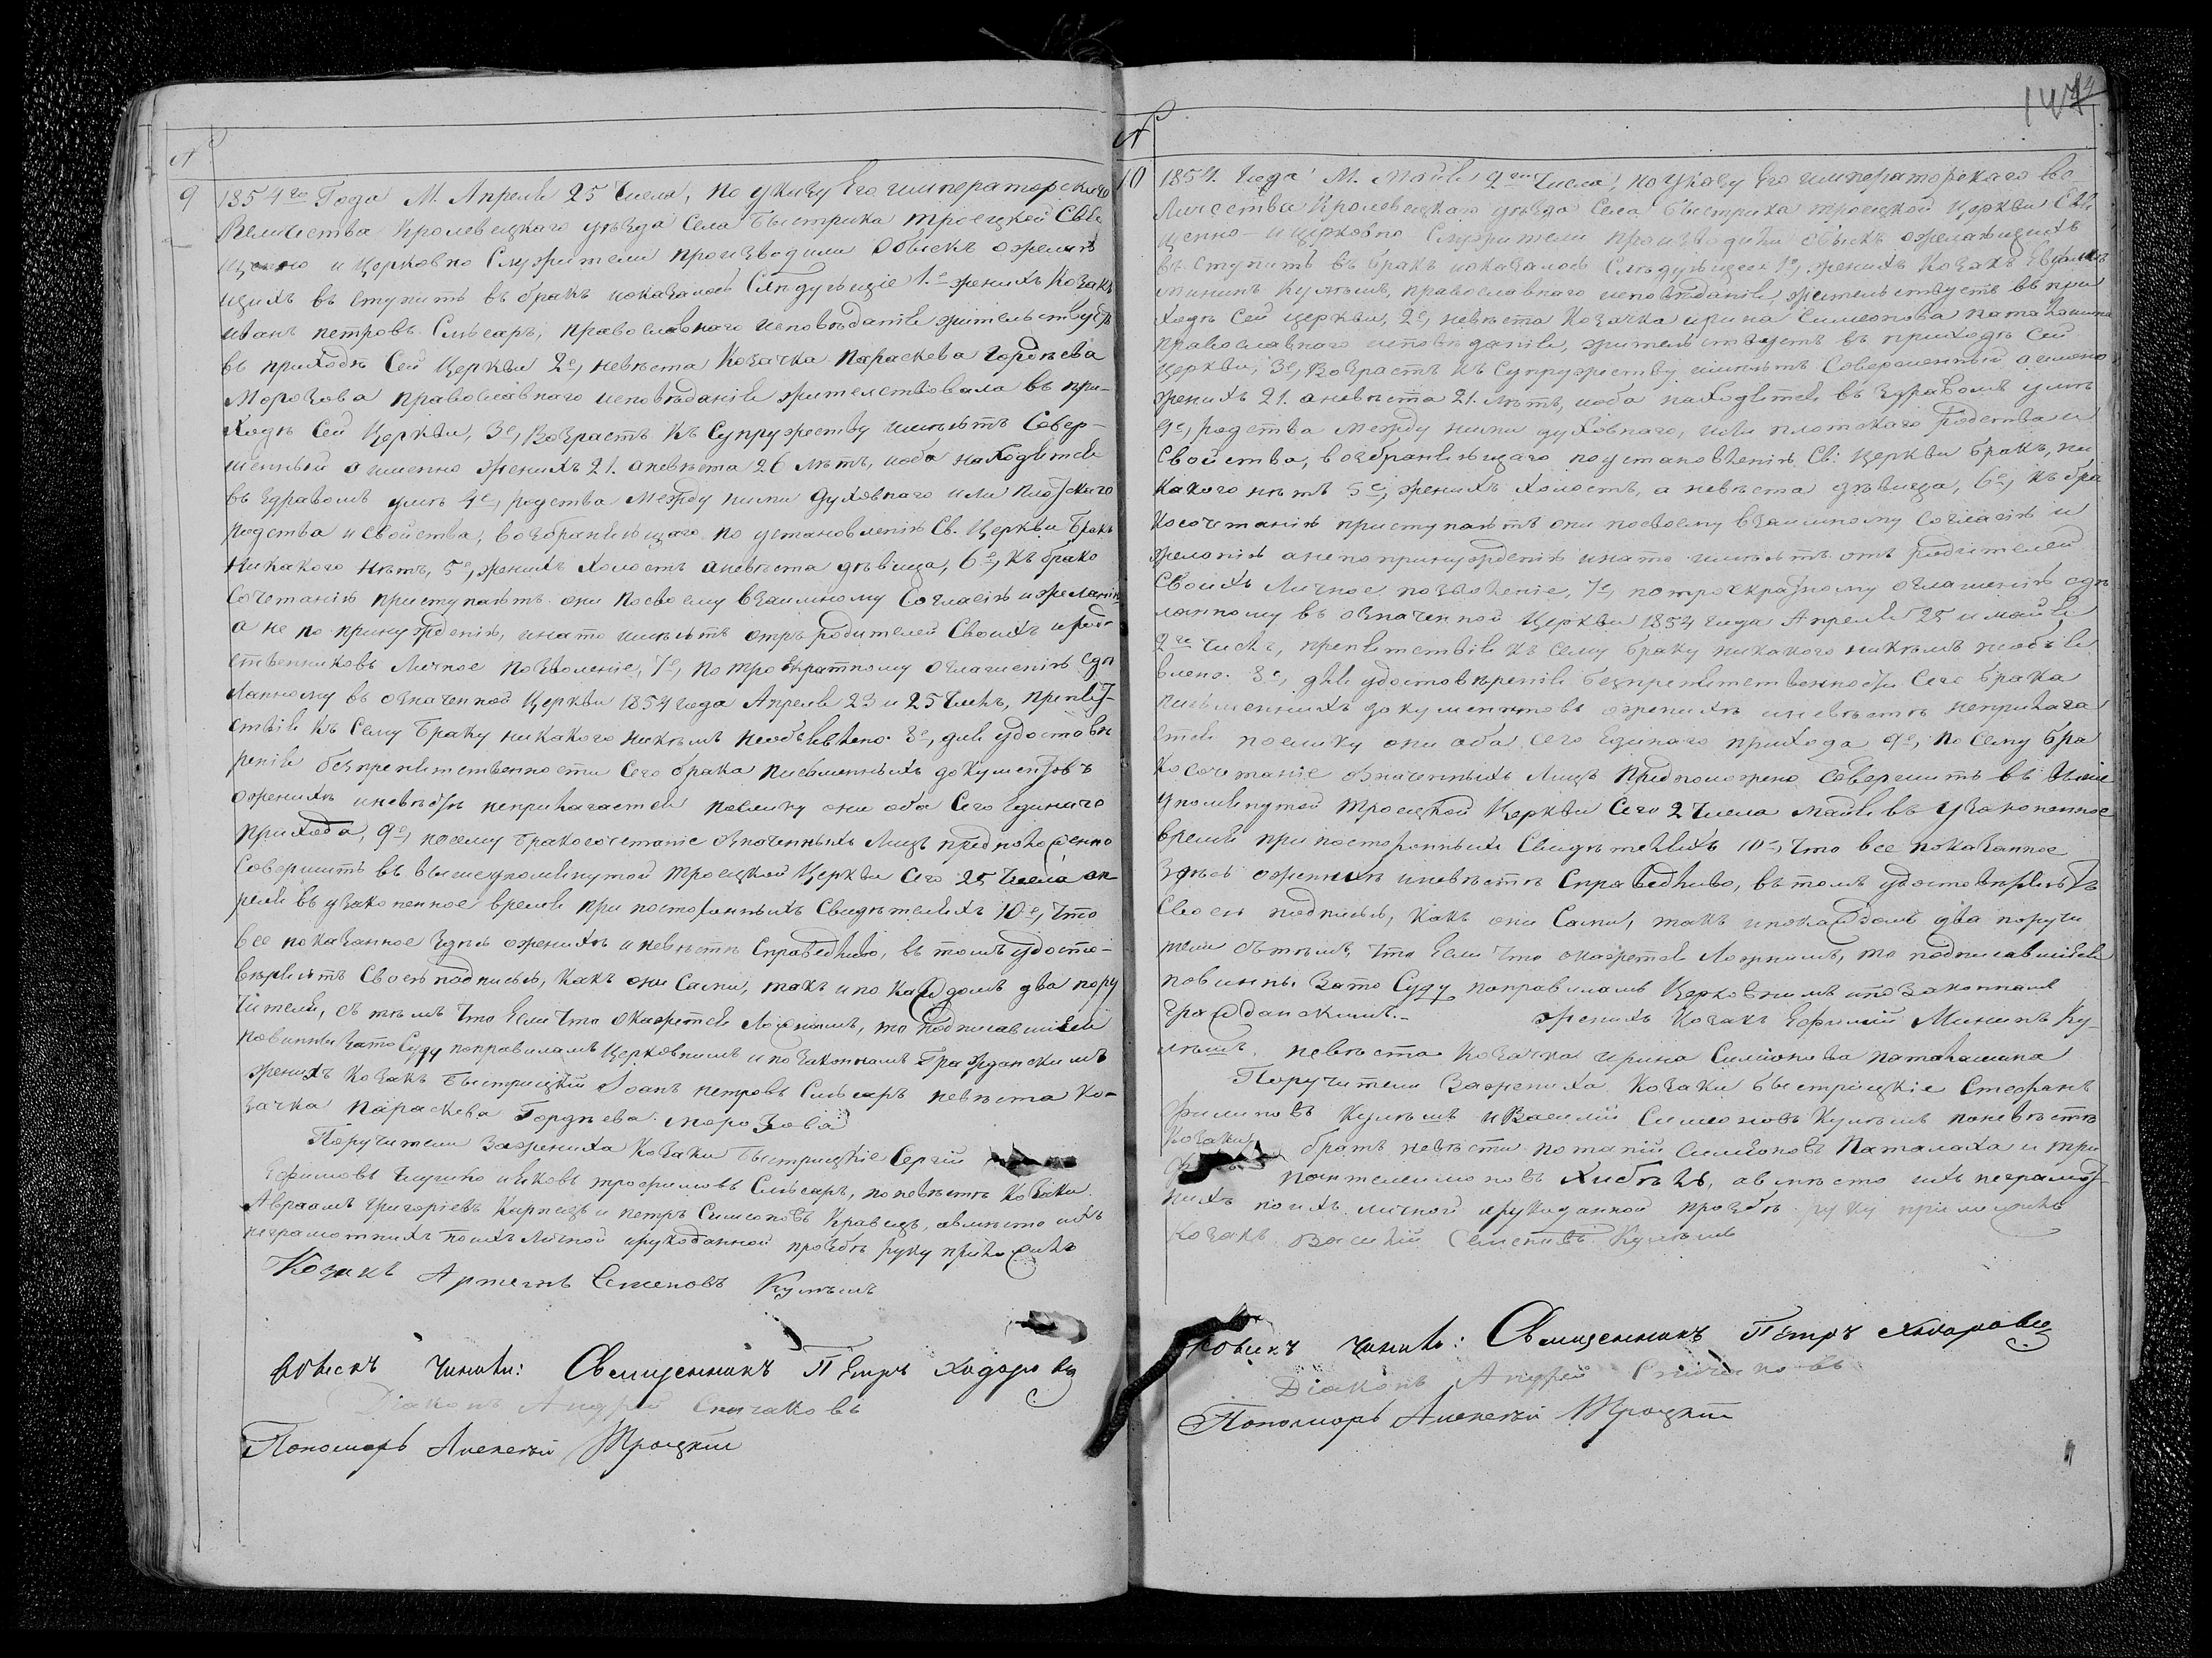 147
№
9 1854го Года М. Апреля 25 Числа, по указу Его императорскаго
Величества Кролевецкаго уѣзда Села Быстрика троецкой Свя
щенно и Церковно Служители производили Обыскъ о желаю
щихъ въ ступить въ бракъ показалось Слѣдующіе 1.е женихъ Козакъ
иванъ петровъ Слѣсаръ, православнаго исповѣданія жительствуетъ
въ приходѣ Сей Церкви 2е, невѣста Козачка Параскева Гордѣева
Морозова православнаго исповѣданія жителствовала въ при-
ходѣ Сей Церкви, 3е, Возрастъ къ Супружеству имѣютъ Совер-
шенный а именно женихъ 21. а невѣста 26 лѣтъ, и оба находятся
въ здравомъ умѣ 4е, родства между ними духовнаго или плотскаго
родства и свойства, возбраняющаго по установленію Св. Церкви бракъ
никакого нѣтъ, 5е, женихъ холостъ а невѣста дѣвица, 6е, къ брако
сочетанію приступаютъ они по своему взаимному Согласію и желанію
а не по принужденію, и на то имѣютъ отъ родителей Своихъ и род-
ственниковъ личное позволеніе, 7е, по троекратному оглашенію сдѣ
ланному въ означенной Церкви 1854 года Апреля 23 и 25 Числъ, препят-
ствія къ Сему браку никакого никѣмъ необъявлено. 8е, для удостовѣ
ренія безпрепятственности Сего брака письменныхъ документовъ
о женихѣ и невѣстѣ неприлагается поелику они оба Сего единаго
прихода, 9е, посему бракосочетаніе означенныхъ Лицъ предположенно
Совершить въ вышеупомянутой троецкой Церкви Сего 25 Числа ап-
реля въ узаконенное время при постороннихъ Свидѣтеляхъ 10е, Что
все показанное здѣсь о женихѣ и невѣстѣ Справедливо, въ томъ удосто-
вѣряютъ Своею подписью, какъ они Сами, такъ и по каждомъ два пору
чителя, съ тѣмъ что если что окажется Ложнымъ, то подписавшіеся
повинны за то Суду по правиламъ Церковнымъ и по законнамъ Гражданскимъ
женихъ Козакъ быстрицкій Іоанъ петровъ Слѣсаръ невѣста Ко-
зачка Параскева Гордѣева Морозова
Поручители за жениха Козаки быстрицкіе Сергій
Ефимовъ и Яковъ трофимовъ Слѣсаръ, по невѣстѣ козаки
Авраамъ григоріевъ Карпецъ и петръ Симеоновъ Кравецъ, а вмѣсто ихъ
неграмотныхъ по ихъ личной и рукоданной прозбѣ руку приложилъ
Козакъ Артемъ Семеновъ Кулѣшъ
Обыскъ чинили: Священникъ Петръ Ходоровъ
Діаконъ Андрей Спичаковъ
Пономарь Алексѣй Троцкій
№
10 1854. Года М. Маія 2го числа, по указу Его императорскаго ве-
личества Кролевецкаго уѣзда Села быстрика троецкой Церкви Свя
щенно- и церковно Служители производили обыскъ о желающихъ
въ ступить въ бракъ показалось Слѣдующее 1е, женихъ Козакъ Евфимъ
мининъ Кулѣшъ, православнаго исповѣданія, жительствуетъ въ при
ходѣ сей церкви, 2е, невѣста Козачка ирина Симеонова паталашина
православнаго исповѣданія, жительствуетъ въ приходѣ Сей
Церкви, 3е, Возрастъ къ Супружеству имѣютъ Совершенный а именно
женихъ 21. а невѣста 21. лѣтъ, и оба находятся въ здравомъ умѣ
4е, родства между ними духовнаго, или плотскаго родства и
свойства, возбраняющаго по установленію Св: Церкви бракъ, ни
какого нѣтъ 5е, женихъ холостъ, а невѣста дѣвица, 6е, къ бра
косочетанію приступаютъ они по своему взаимному согласію и
желанію а не по принужденію и на то имѣютъ отъ родителей
Своихъ Личное позволеніе, 7е, по троекратному оглашенію сдѣ
ланному въ означенной Церкви 1854 года Апреля 25 и маія
2го числъ, препятствія къ сему браку никакого никѣмъ необъя
влено. 8е, для удостовѣренія безпрепятственности Сего брака
письменныхъ документовъ о женихѣ и невѣстѣ неприлага
ется поелику они оба сего единаго прихода 9е, по Сему бра
косочетаніе означенныхъ Лицъ предположено совершить въ выше
упомянутой троецкой Церкви Сего 2 Числа Маія въ узаконенное
время при постороннихъ Свидѣтеляхъ 10е, Что все показанное
здѣсь о женихѣ и невѣстѣ Справедливо, въ томъ удостовѣряютъ
Своею подписью, какъ они Сами, такъ и по каждомъ два поручи
тели съ тѣмъ, что если что окажется Ложнымъ, то подписавшіеся
повинны за то Суду по правиламъ Церковнымъ и по законнамъ
гражданскимъ.- женихъ Козакъ Ефимій Мининъ Ку-
лѣшъ. невѣста козачка ирина Симіонова паталашина
Поручители за жениха Козаки быстрицкіе Стефанъ
филиповъ Кулѣшъ и Василій Симеоновъ Кулѣшъ по невѣстѣ
Козаки братъ невѣсты потапій Симіоновъ Паталаха и три
пантелеимоновъ а вмѣсто ихъ неграмот-
ныхъ по ихъ личной и рукоданной прозбѣ руку приложилъ
Козакъ Василій Семеновъ Кулѣшъ
Обыскъ чинили: Священникъ Петръ Ходоровъ
Діаконъ Андрей Спичаковъ
Пономарь Алексѣй Троцкій